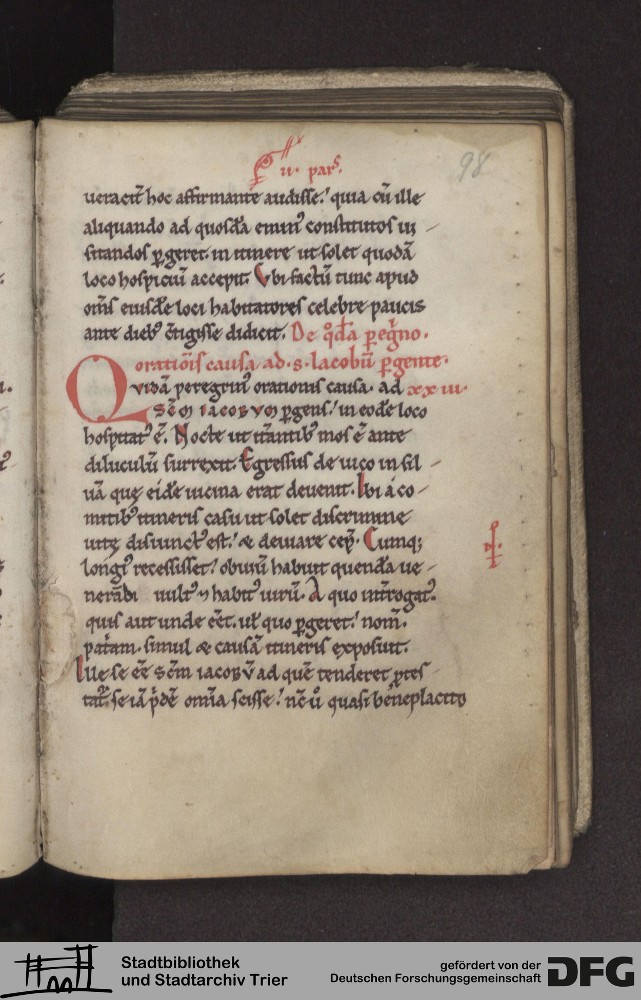 98
ii. pars.
ueracit̄ hoc affirmante audisse. quia cū ille
aliquando ad quosdā emin' constitutos ui-
sitandos ꝑgeret. in itinere ut solet quodā
loco hospiciū accepit. Vbi factū tunc apud
om̄s eiusdē loci habitatores celebre paucis
ante dieb' c̄tigisse didicit. De qͦdā peregͥno.
oratiōis causa ad .s. Iacobū ꝑgente.
Quidā peregrin' orationis causa. ad xxiii.
SC̄M IACOBVM ꝑgens. in eodē loco
hospitat' ē. Nocte ut itātib' mos ē ante
diluculū surrexit. Egressus de uico in sil-
uā quę eidē uicina erat deuenit. Ibi a co-
mitib' itineris casu ut solet discrimine
uitę disiunct' est. & deuiare cep̄. Cumq;
long' recessisset. obuiū habuit quendā ue-
nerādi uult' ⁊ habit' uirū. A quo int̄rogat'.
quis aut unde eēt. uł quo ꝑgeret. nom̄.
pat̄am. simul & causā itineris exposuit.
Ille se eē sc̄m iacobū ad quē tenderet ꝓtes-
tat'. se iā pͥdē omīa scisse. nc̄ uͦ quasi beneplacito
Stadtbibliothek
und Stadtarchiv Trier
gefördert von der
Deutschen Forschungsgemeinschaft
DFG